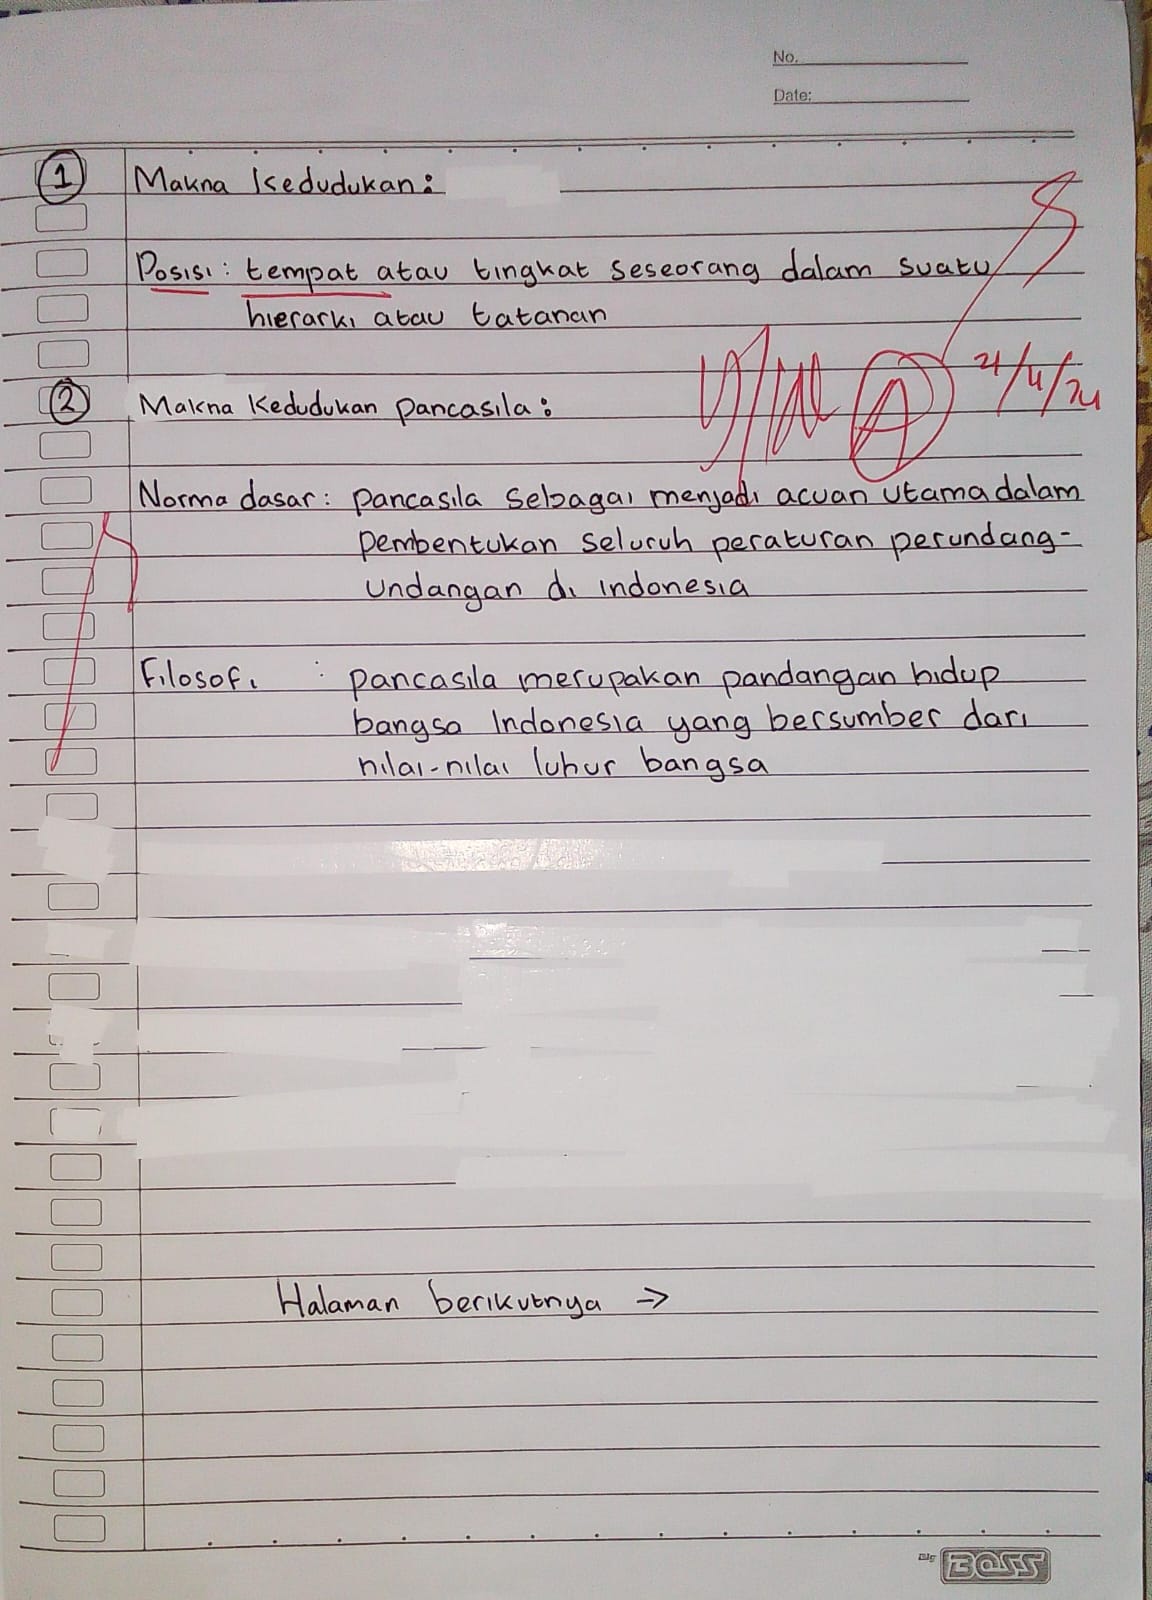 No.
Date:
1 Makna Kedudukan:
Posisi: tempat atau tingkat seseorang dalam suatu
hierarki atau tatanan
A 21/4/24
2 Makna Kedudukan Pancasila:
Norma dasar: Pancasila sebagai menjadi acuan utama dalam
pembentukan seluruh peraturan perundang-
undangan di indonesia
Filosofi : pancasila merupakan pandangan hidup
bangsa Indonesia yang bersumber dari
nilai-nilai luhur bangsa
Halaman berikutnya →
Big BOSS